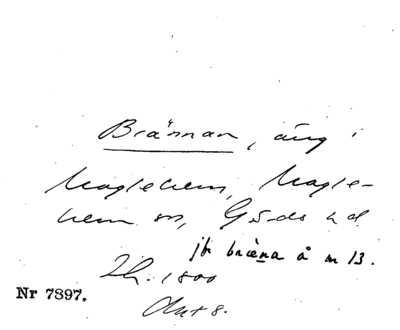 Brännan, äng i
Maglehem, Magle-
hem sn, Gärds hd.
jfr bræna å m 13.
Lh. 1800
Akt 8.
Nr 7897.